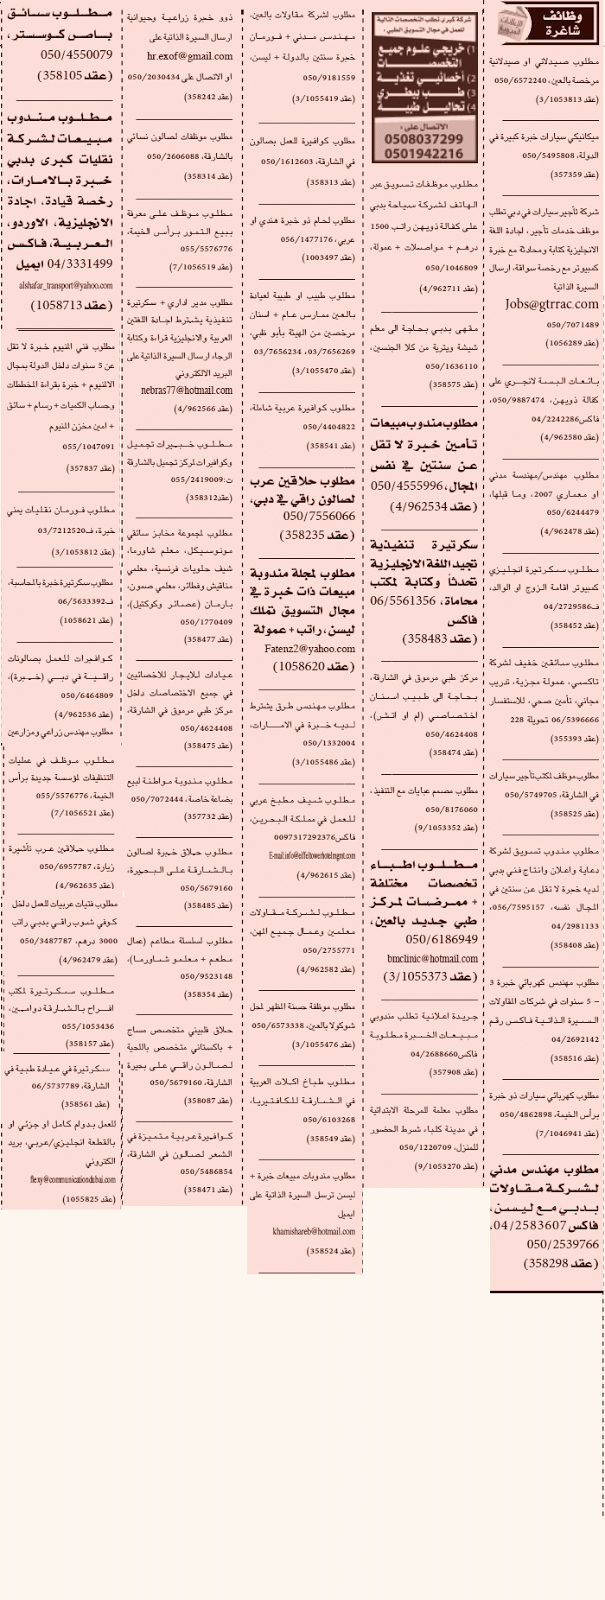 وظائف
شاغرة
مطلوب صيدلاني او صيدلانية
مرخصة بالعين، 050/6572240
(عقد 3/1053813)
ميكانيكي سيارات خبرة كبيرة في
الدولة، 050/5495808
(عقد 357359)
شركة تأجير سيارات في دبي تطلب
موظف خدمات تأجير، اجادة اللغة
الانجليزية كتابة ومحادثة مع خبرة
كمبيوتر مع رخصة سواقة، ارسال
السيرة الذاتية
Jobs@gtrrac.com
050/7071489
(عقد 1056289)
بائعات البسة لانجري على
كفالة ذويهن، 050/9887474،
فاكس04/2242286
(عقد 4/962580)
مطلوب مهندس/مهندسة مدني
او معماري 2007، وما قبلها،
050/6244479
(عقد 4/962478)
مطلوب سكرتيرة انجليزي
كمبيوتر اقامة الزوج او الوالد،
فـ04/2729586
(عقد 358452)
مطلوب سائقين خفيف لشركة
تاكسي، عمولة مجزية، تدريب
مجاني، تأمين صحي، للاستفسار
06/5396666 تحويلة 228
(عقد 355393)
مطلوب موظف لمكتب تأجير سيارات
في الشارقة، 050/5749705
(عقد 358525)
مطلوب مندوب تسويق لشركة
دعاية واعلان وانتاج فني بدبي
لديه خبرة لا تقل عن سنتين في
المجال نفسه، 056/7595157،
04/2981133
(عقد 358408)
مطلوب مهندس كهربائي خبرة 3
– 5 سنوات في شركات المقاولات
السيرة الذاتية فاكس رقم
04/2692142
(عقد 358516)
مطلوب كهربائي سيارات ذو خبرة
برأس الخيمة، 050/4862898
(عقد 7/1046941)
مطلوب مهندس مدني
لشركة مقاولات
بدبي مع ليسن،
فاكس 04/2583607،
050/2539766
(عقد 358298)
شركة كبرى تطلب التخصصات التالية
للعمل في مجال التسويق الطبي،
1) خريجي علوم جميع
التخصصات
2) أخصائيي تغذية
3) طب بيطري
4) تحاليل طبية
الاتصال على:
0508037299
0501942216
مطلوب موظفات تسويق عبر
الهاتف لشركة سياحة بدبي
على كفالة ذويهن راتب 1500
درهم + مواصلات + عمولة،
050/1046809
(عقد 4/962711)
مقهى بدبي بحاجة الى معلم
شيشة ويترية من كلا الجنسين،
050/1636110
(عقد 358575)
مطلوب مندوب مبيعات
تأمين خبرة لا تقل
عن سنتين في نفس
المجال، 050/4555996
(عقد 4/962534)
سكرتيرة تنفيذية
تجيد اللغة الانجليزية
تحدثاً وكتابة لمكتب
محاماة، 06/5561356
فاكس
(عقد 358483)
مركز طبي مرموق في الشارقة،
بحاجة الى طبيب اسنان
اختصاصي (ام او انثى)،
050/4624408
(عقد 358474)
مطلوب مصمم عبايات مع التنفيذ،
050/8176060
(عقد 9/1053352)
مطلوب اطباء
تخصصات مختلفة
+ ممرضات لمركز
طبي جديد بالعين،
050/6186949
bmclinic@hotmail.com
(عقد 3/1055373)
جريدة اعلانية تطلب مندوبي
مبيعات الخبرة مطلوبة
فاكس04/2688660
(عقد 357908)
مطلوب معلمة للمرحلة الابتدائية
في مدينة كلباء شرط الحضور
للمنزل، 050/1220709
(عقد 9/1053270)
مطلوب لشركة مقاولات بالعين،
مهندس مدني + فورمان
خبرة سنتين بالدولة + ليسن،
050/9181559
(عقد 3/1055419)
مطلوب كوافيرة للعمل بصالون
في الشارقة، 050/1612603
(عقد 358313)
مطلوب لحام ذو خبرة هندي او
عربي، 056/1477176
(عقد 1003497)
مطلوب طبيب او طبيبة لعيادة
بالعين ممارس عام + اسنان
مرخصين من الهيئة بأبو ظبي،
03/7656269، 03/7656234
(عقد 3/1055470)
مطلوب كوافيرة عربية شاملة،
050/4404822
(عقد 358541)
مطلوب حلاقين عرب
لصالون راقي في دبي،
050/7556066
(عقد 358235)
مطلوب لمجلة مندوبة
مبيعات ذات خبرة في
مجال التسويق تملك
ليسن، راتب + عمولة
Fatenz2@yahoo.com
(عقد 1058620)
مطلوب مهندس طرق يشترط
لديه خبرة في الامارات،
050/1332004
(عقد 3/1055486)
مطلوب شيف مطبخ عربي
للعمل في مملكة البحرين،
فاكس0097317292376
E-mail:info@eiffeltowerhotelmgmt.com
(عقد 4/962615)
مطلوب لشركة مقاولات
معلمين وعمال جميع المهن،
050/2755771
(عقد 4/962582)
مطلوب موظفة حسنة المظهر لمحل
شوكولا بالعين، 050/6573338
(عقد 3/1055476)
مطلوب طباخ اكلات العربية
في الشارقة للكافتيريا،
050/6103268
(عقد 358549)
مطلوب مندوبات مبيعات خبرة +
ليسن ترسل السيرة الذاتية على
ايميل
khamishareb@hotmail.com
(عقد 358524)
ذوو خبرة زراعية وحيوانية
ارسال السيرة الذاتية على
hr.exof@gmail.com
او الاتصال على 050/2030434
(عقد 358242)
مطلوب موظفات لصالون نسائي
بالشارقة، 050/2606088
(عقد 358314)
مطلوب موظف على معرفة
ببيع التمور برأس الخيمة،
055/5576776
(عقد 7/1056519)
مطلوب مدير اداري + سكرتيرة
تنفيذية يشترط اجادة اللغتين
العربية والانجليزية قراءة وكتابة
الرجاء ارسال السيرة الذاتية على
البريد الالكتروني
nebras77@hotmail.com
(عقد 4/962566)
مطلوب خبيرات تجميل
وكوافيرات لمركز تجميل بالشارقة
ت:055/2419009
(عقد358312)
مطلوب لمجموعة مخابز سائقي
موتوسيكل، معلم شاورما،
شيف حلويات فرنسية، معلمي
مناقيش وفطائر، معلمي صمون،
بارمان (عصائر وكوكتيل)،
050/1770409
(عقد 358477)
عيادات للايجار للاخصائيين
في جميع الاختصاصات داخل
مركز طبي مرموق في الشارقة،
050/4624408
(عقد 358475)
مطلوب مندوبة مواطنة لبيع
بضاعة خاصة، 050/7072444
(عقد 357732)
مطلوب حلاق خبرة لصالون
بالشارقة على البحيرة،
050/5679160
(عقد 358485)
مطلوب لسلسلة مطاعم (عمال
مطعم + معلمو شاورما)،
050/9523148
(عقد 358354)
حلاق فلبيني متخصص مساج
+ باكستاني متخصص باللحية
لصالون راقي على بحيرة
الشارقة، 050/5679160
(عقد 358087)
كوافيرة عربية متميزة في
الشعر لصالون في الشارقة،
050/5486854
(عقد 358471)
مطلوب سائق
باصي كوستر،
050/4550079
(عقد 358105)
مطلوب مندوب
مبيعات لشركة
نقليات كبرى بدبي
خبرة بالامارات،
رخصة قيادة، اجادة
الانجليزية، الاوردو،
العربية، فاكس
04/3331499 ايميل
alshafar_transport@yahoo.com
(عقد 1058713)
مطلوب فني المنيوم خبرة لا تقل
عن 5 سنوات داخل الدولة بمجال
الالنيوم + خبرة بقراءة المخططات
وحساب الكميات + رسام + سائق
+ امين مخزن المنيوم
055/1047091
(عقد 357837)
مطلوب فورمان نقليات يمني
خبرة، فـ03/7212520
(عقد 3/1053812)
مطلوب سكرتيرة خبرة بالمحاسبة،
فـ06/5633392
(عقد 1058621)
كوافيرات للعمل بصالونات
راقية في دبي (خبرة)،
050/6464809
(عقد 4/962536)
مطلوب مهندس زراعي ومزارعين
مطلوب موظف في عمليات
التنظيفات لمؤسسة جديدة برأس
الخيمة، 055/5576776
(عقد 7/1056521)
مطلوب حلاقين عرب تأشيرة
زيارة، 050/6957787
(عقد 4/962635)
مطلوب فتيات عربيات للعمل داخل
كوفي شوب راقي بدبي راتب
3000 درهم، 050/3487787
(عقد 4/962479)
مطلوب سكرتيرة لمكتب
افراح بالشارقة دوامين،
055/1053436
(عقد 358157)
سكرتيرة في عيادة طبية في
الشارقة، 06/5737789
(عقد 358561)
للعمل بدوام كامل او جزئي او
بالقطعة انجليزي/عربي، بريد
الكتروني
flexy@communicationdubai.com
(عقد 1055825)